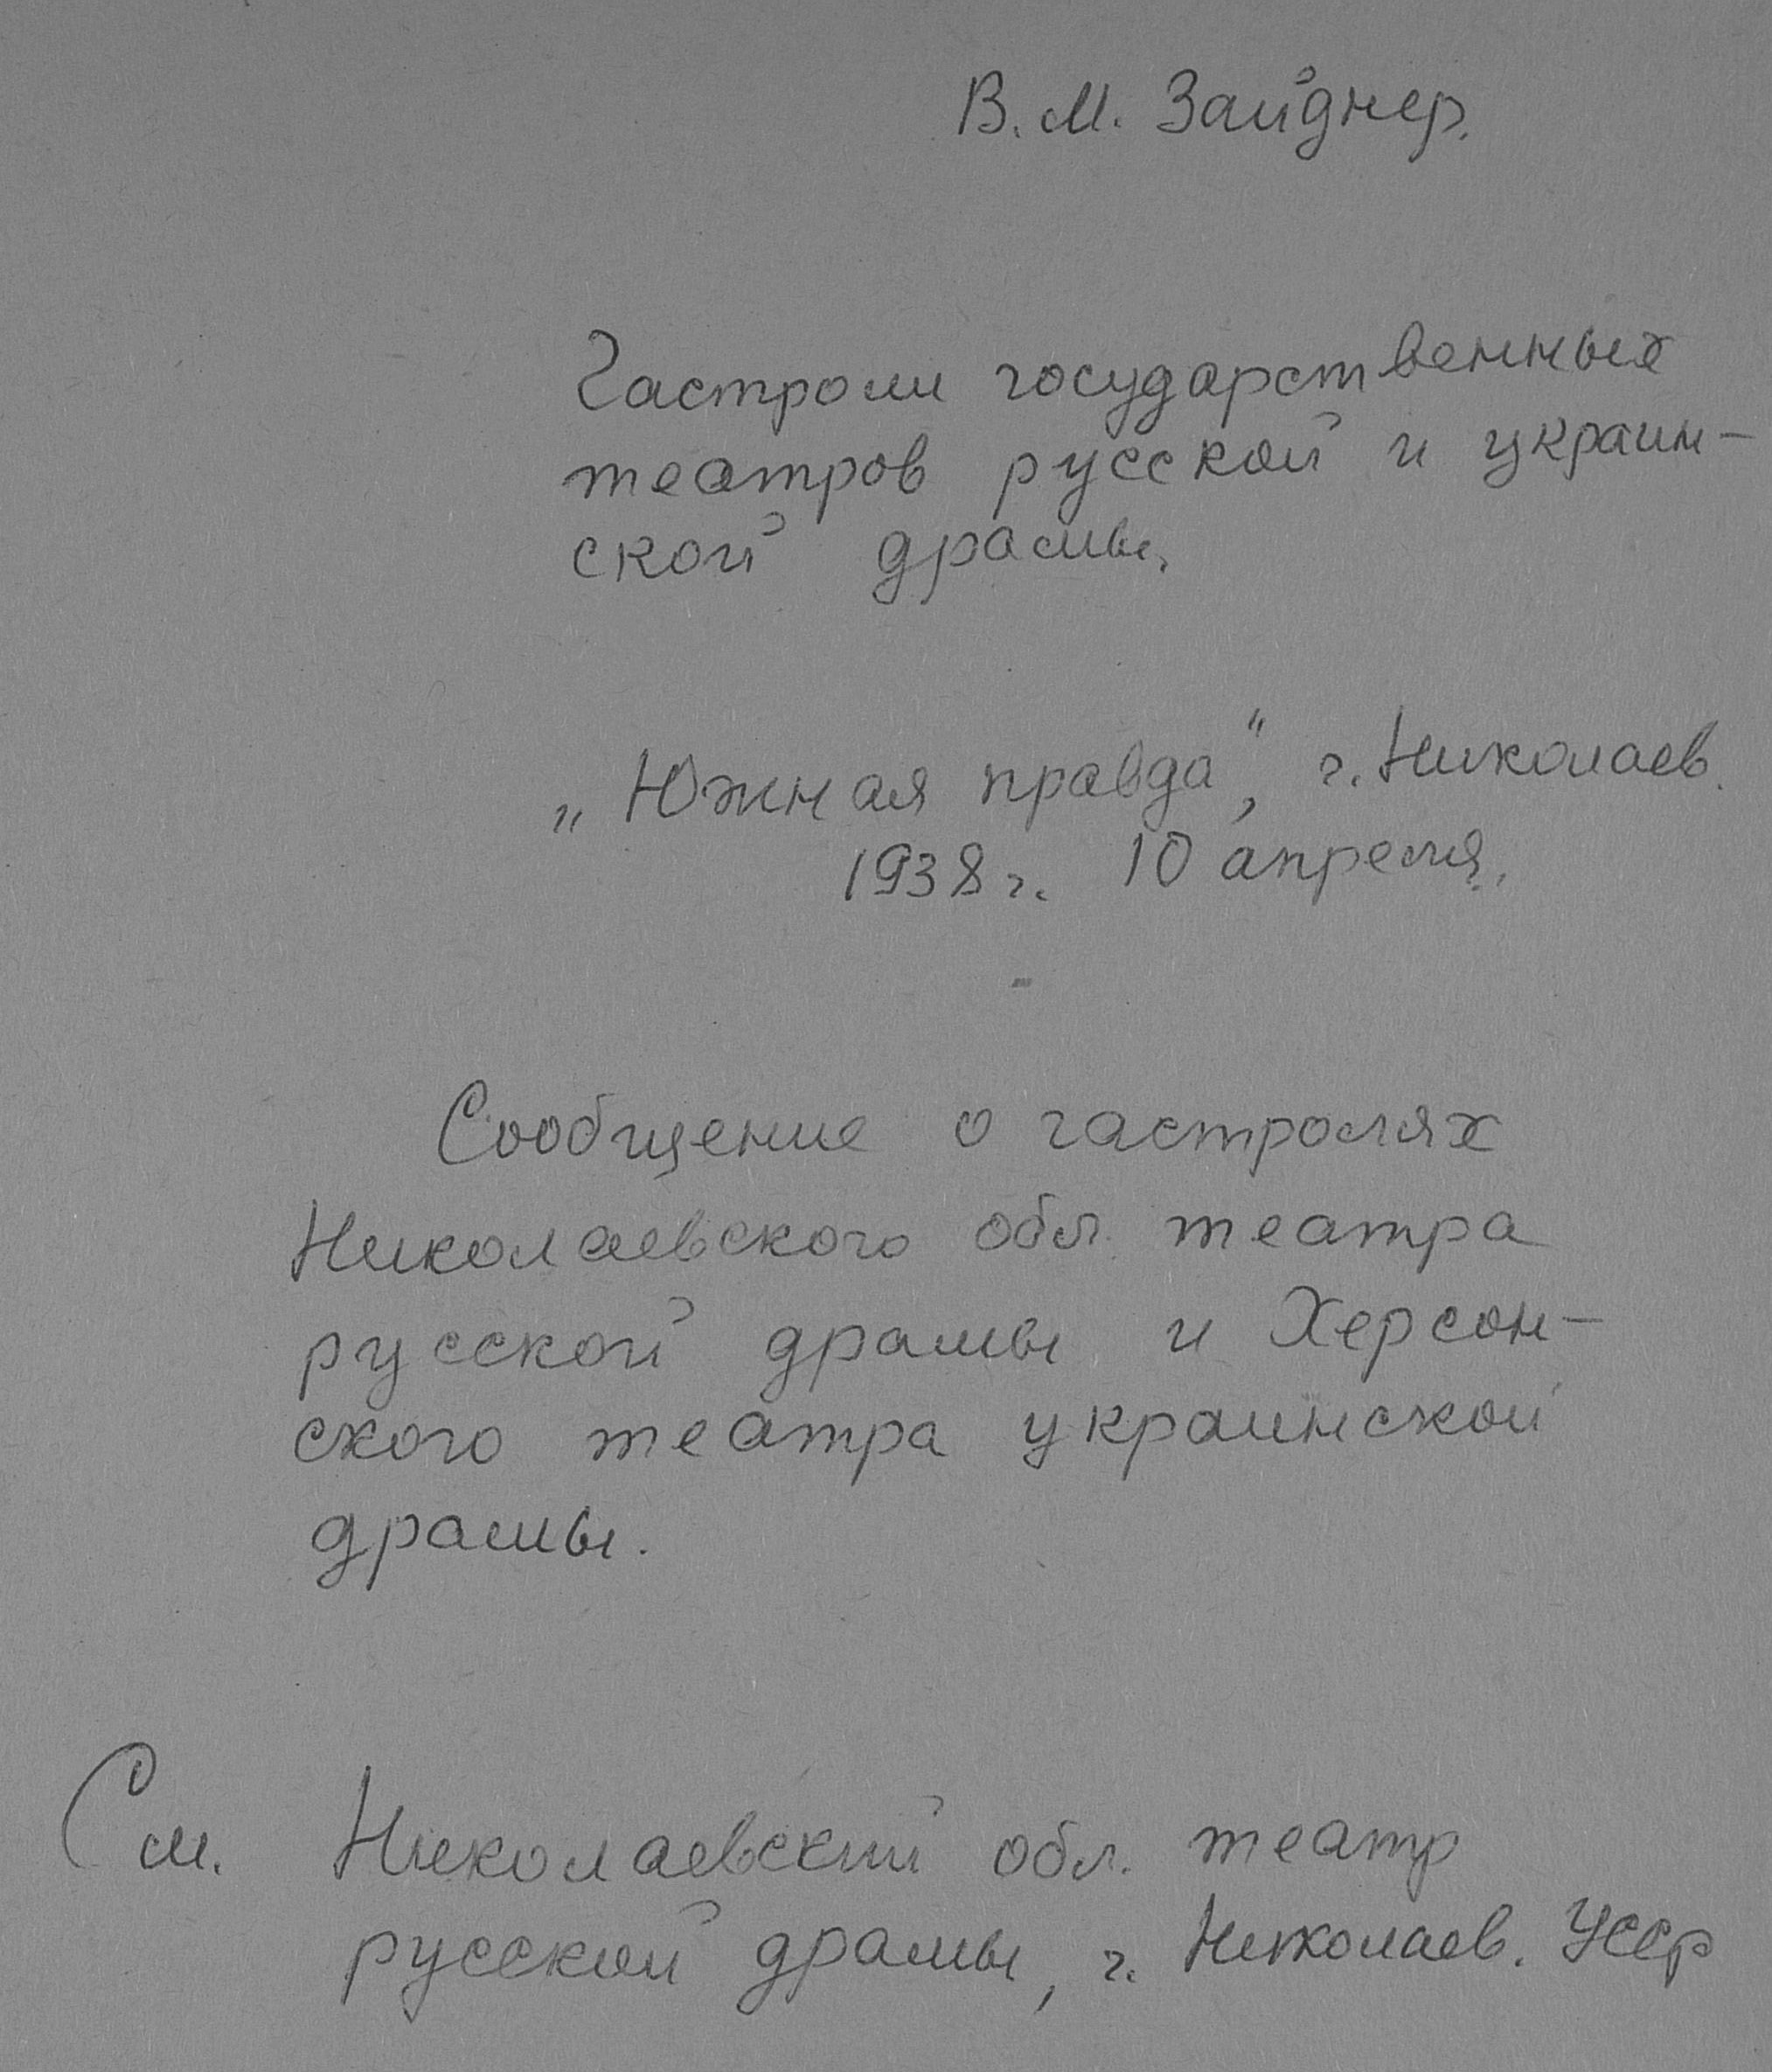 В. М. Зайднер.
Гастроли государственных
театров русской и украин-
ской драмы.
„Южная правда", г. Николаев.
1938 г. 10 апреля.
Сообщение о гастролях
Николаевского обл. театра
русской драмы и Херсон-
ского театра украинской
драмы.
См. Николаевский обл. театр
русской драмы, г. Николаев. УССР